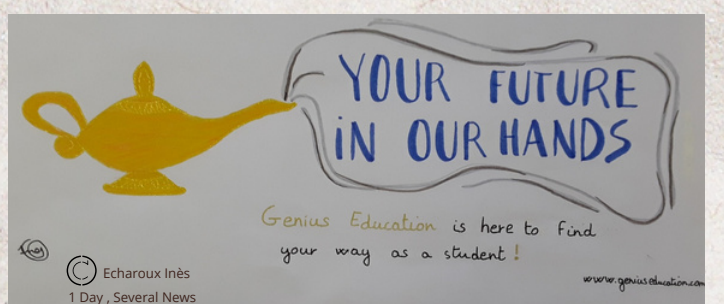 YOUR FUTURE
iN OUR HANDS
Genius Education is here to find
your way as a student!
www.geniuseducation.com
Echaroux Inès
1 Day , Several News